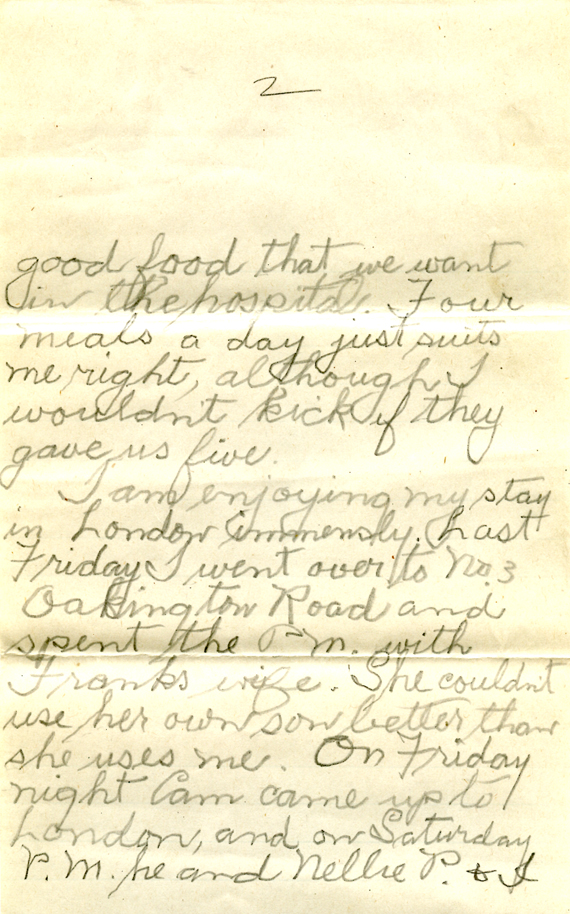 2
good food that we want
in the hospital. Four
meals a day just suits
me right, although I
wouldn't kick if they
gave us five.
I am enjoying my stay
in London immensly. Last
Friday I went over to No. 3
Oakington Road and
spent the P.M. with
Franks wife. She couldn't
use her own son better than
she uses me. On Friday
night Cam came up to
London, and on Saturday
P.M. he and Nellie P. & I